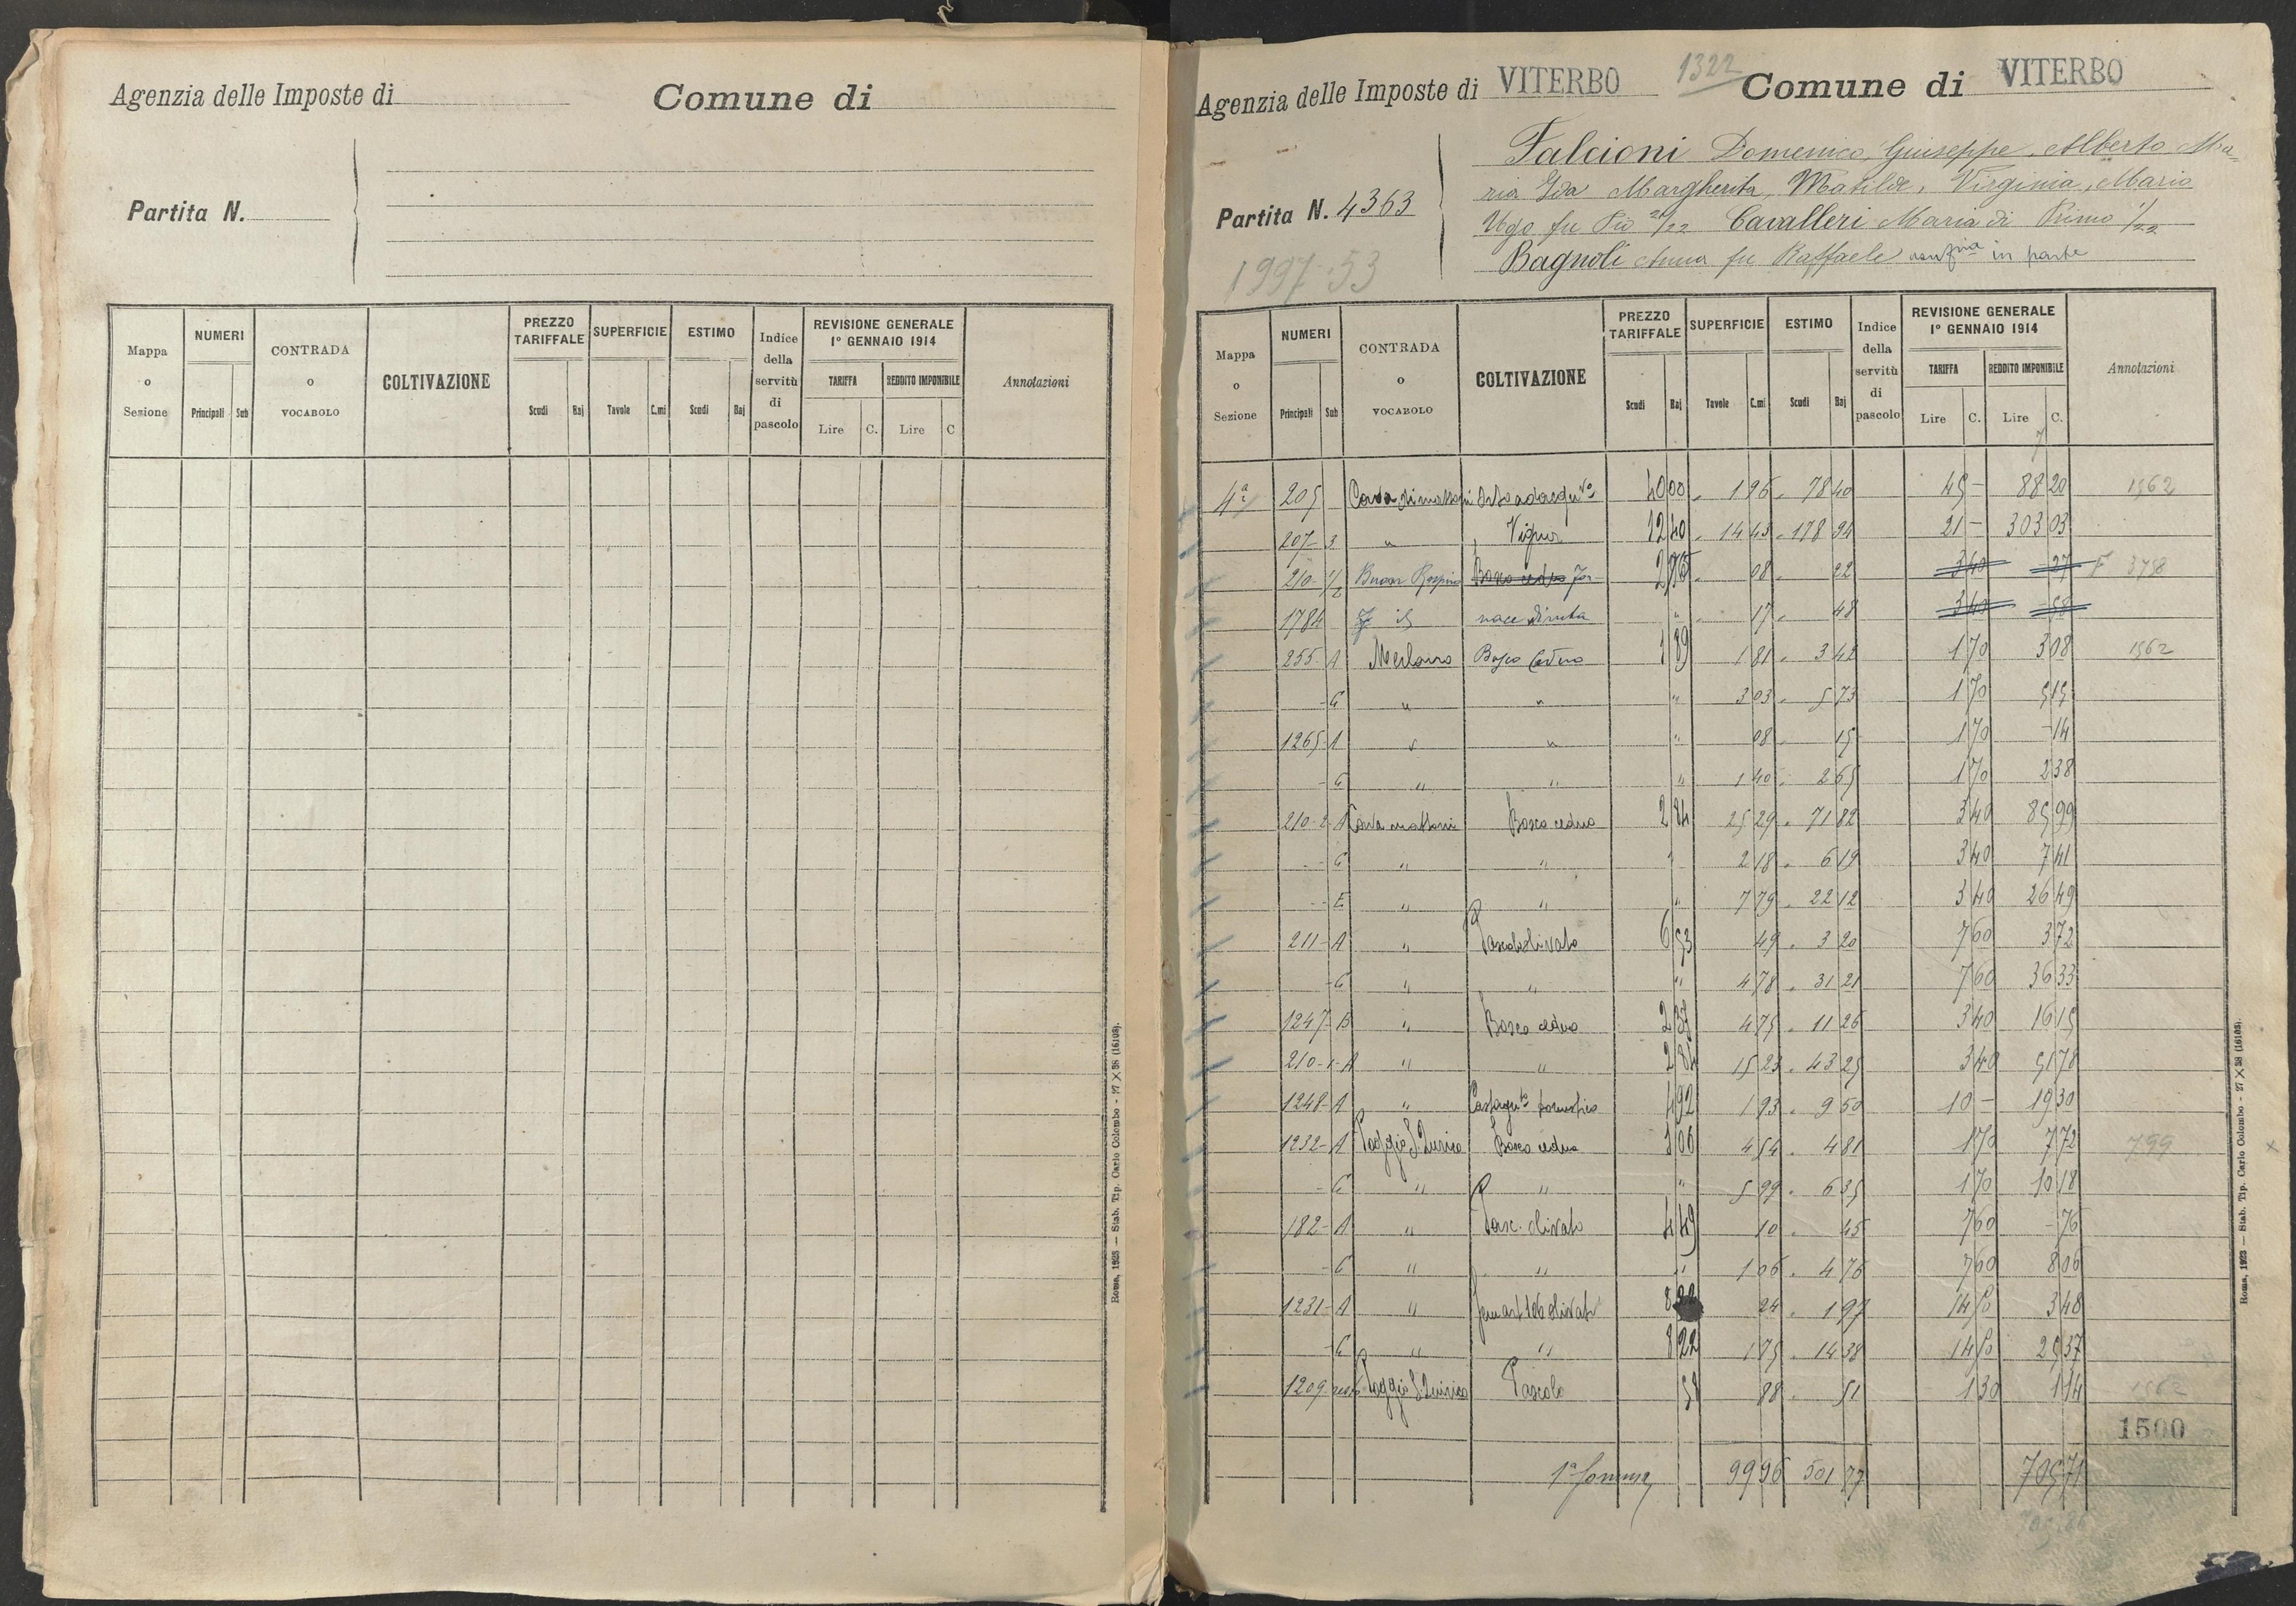 Agenzia delle Imposte di
Comune di
Partita N.
Mappa o Sezione NUMERI Principali Sub CONTRADA o VOCABOLO COLTIVAZIONE PREZZO TARIFFALE Scudi Baj SUPERFICIE Tavole C.mi ESTIMO Scudi Baj Indice della servitù di pascolo REVISIONE GENERALE 1° GENNAIO 1914 TARIFFA Lire C. REDDITO IMPONIBILE Lire C Annotazioni
Roma, 1923 — Stab. Tip. Carlo Colombo - 27 X 38 (16103).
Agenzia delle Imposte di VITERBO 1322 Comune di VITERBO
Falcioni Domenico, Giuseppe, Alberto, Ma=
ria Ida Margherita, Matilde, Virginia, Mario
Partita N. 4363
Ugo fu Pio 21/22 Cavalleri Maria di Primo 1/22
Bagnoli Anna fu Raffaele usufria in parte
1997-53
Mappa o Sezione NUMERI Principali Sub CONTRADA o VOCABOLO COLTIVAZIONE PREZZO TARIFFALE Scudi Baj SUPERFICIE Tavole C.mi ESTIMO Scudi Baj Indice della servitù di pascolo REVISIONE GENERALE 1° GENNAIO 1914 TARIFFA Lire C. REDDITO IMPONIBILE Lire C. Annotazioni
4a 205 Cava di mattoni Orto adacqu to 40 00 1 96 78 40 45 - 88 20 1562
207 3 " Vigna 12 40 14 43 178 94 21 - 303 03
210 1/2 Bosco ceduo For 2 75 08 22 3 40 27 F 3758
1784 nace diruta " 17 48 3 40 58
255 A Merlano Bosco Ceduo 1 89 1 81 3 42 1 70 3 08 1562
- C " " " 3 03 5 73 1 70 5 15
1265 A " " " 08 15 1 70 - 14
- C " " " 1 40 2 65 1 70 2 38
210-2 A Cava mattoni Bosco ceduo 2 84 25 29 71 82 3 40 85 99
- C " " " 2 18 6 19 3 40 7 41
- E " " " 7 79 22 12 3 40 26 49
211 A " Pascolo olivato 6 53 49 3 20 7 60 3 72
- C " " " 4 78 31 21 7 60 36 33
1247 B " Bosco ceduo 4 75 11 26 3 40 16 15
210-1 A " " 2 84 15 23 43 25 3 40 51 78
1248 A " Castagn to domestico 4 92 1 93 9 50 10 - 19 30
1232 A Poggio S. Quirico Bosco ceduo 1 06 4 54 4 81 1 70 7 72 799
- C " " " 5 99 6 35 1 70 10 18
182 A " Pasc. olivato 4 49 10 45 7 60 - 76
- C " " " 1 06 4 76 7 60 8 06
1231 A " olivato 24 1 97 14 50 3 48
- C " " 8 22 1 75 14 38 14 50 25 37
1209 Poggio S. Quirico Pascolo 58 88 51 1 30 1 14 1562
1500
1a Somma 99 96 501 77 705 71
Roma, 1923 — Stab. Tip. Carlo Colombo - 27 X 38 (16103).